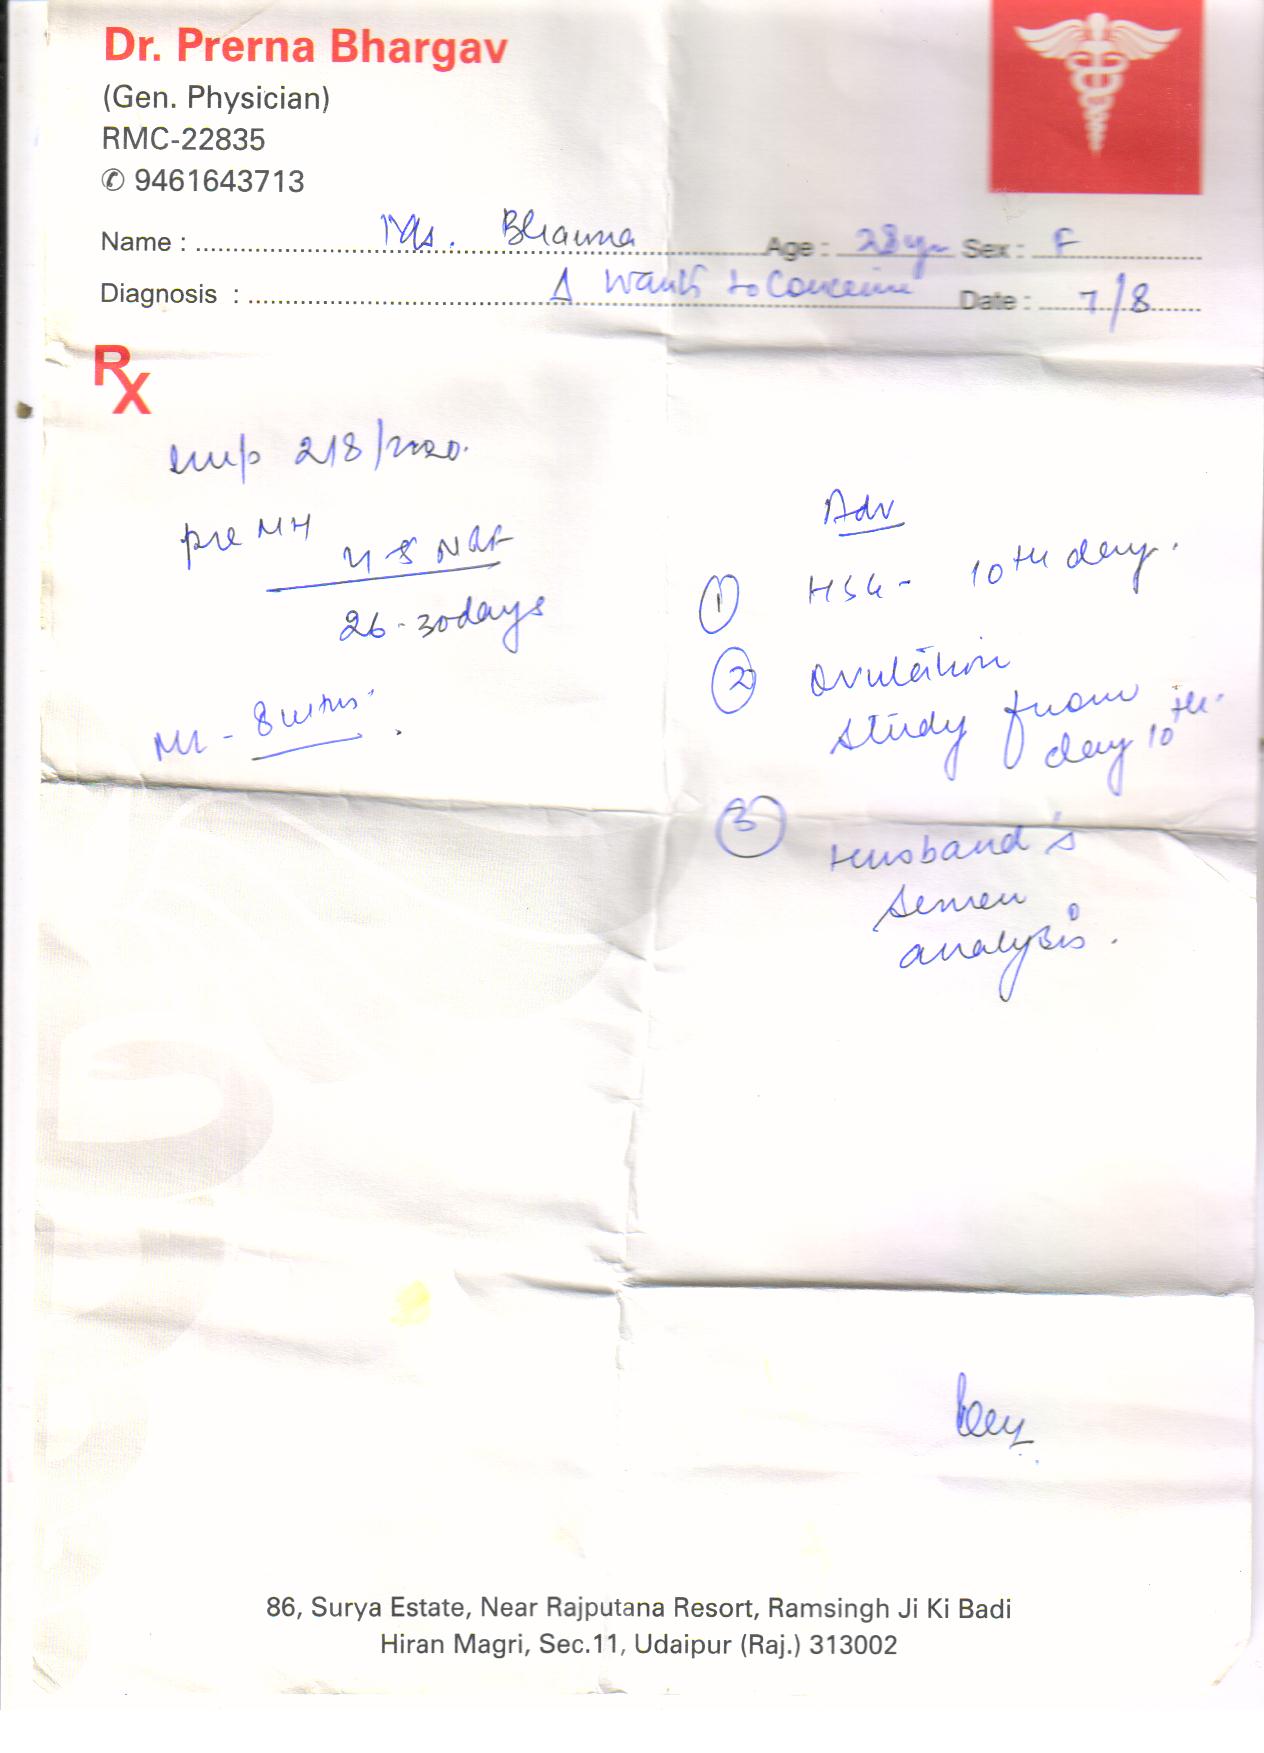 Dr. Prerna Bhargav
(Gen. Physician)
RMC-22835
✆ 9461643713
Name : Ms. Bhauna Age : 28 yr Sex : F
Diagnosis : Δ wants to conceive Date : 7/8
Rx
LMP 2/8/2020.
pre MH
26-30 days
ML - 8 mths.
Adv
① HSG - 10th day.
② Ovulation
study from
day 10th.
③ Husband's
semen
analysis.
86, Surya Estate, Near Rajputana Resort, Ramsingh Ji Ki Badi
Hiran Magri, Sec.11, Udaipur (Raj.) 313002